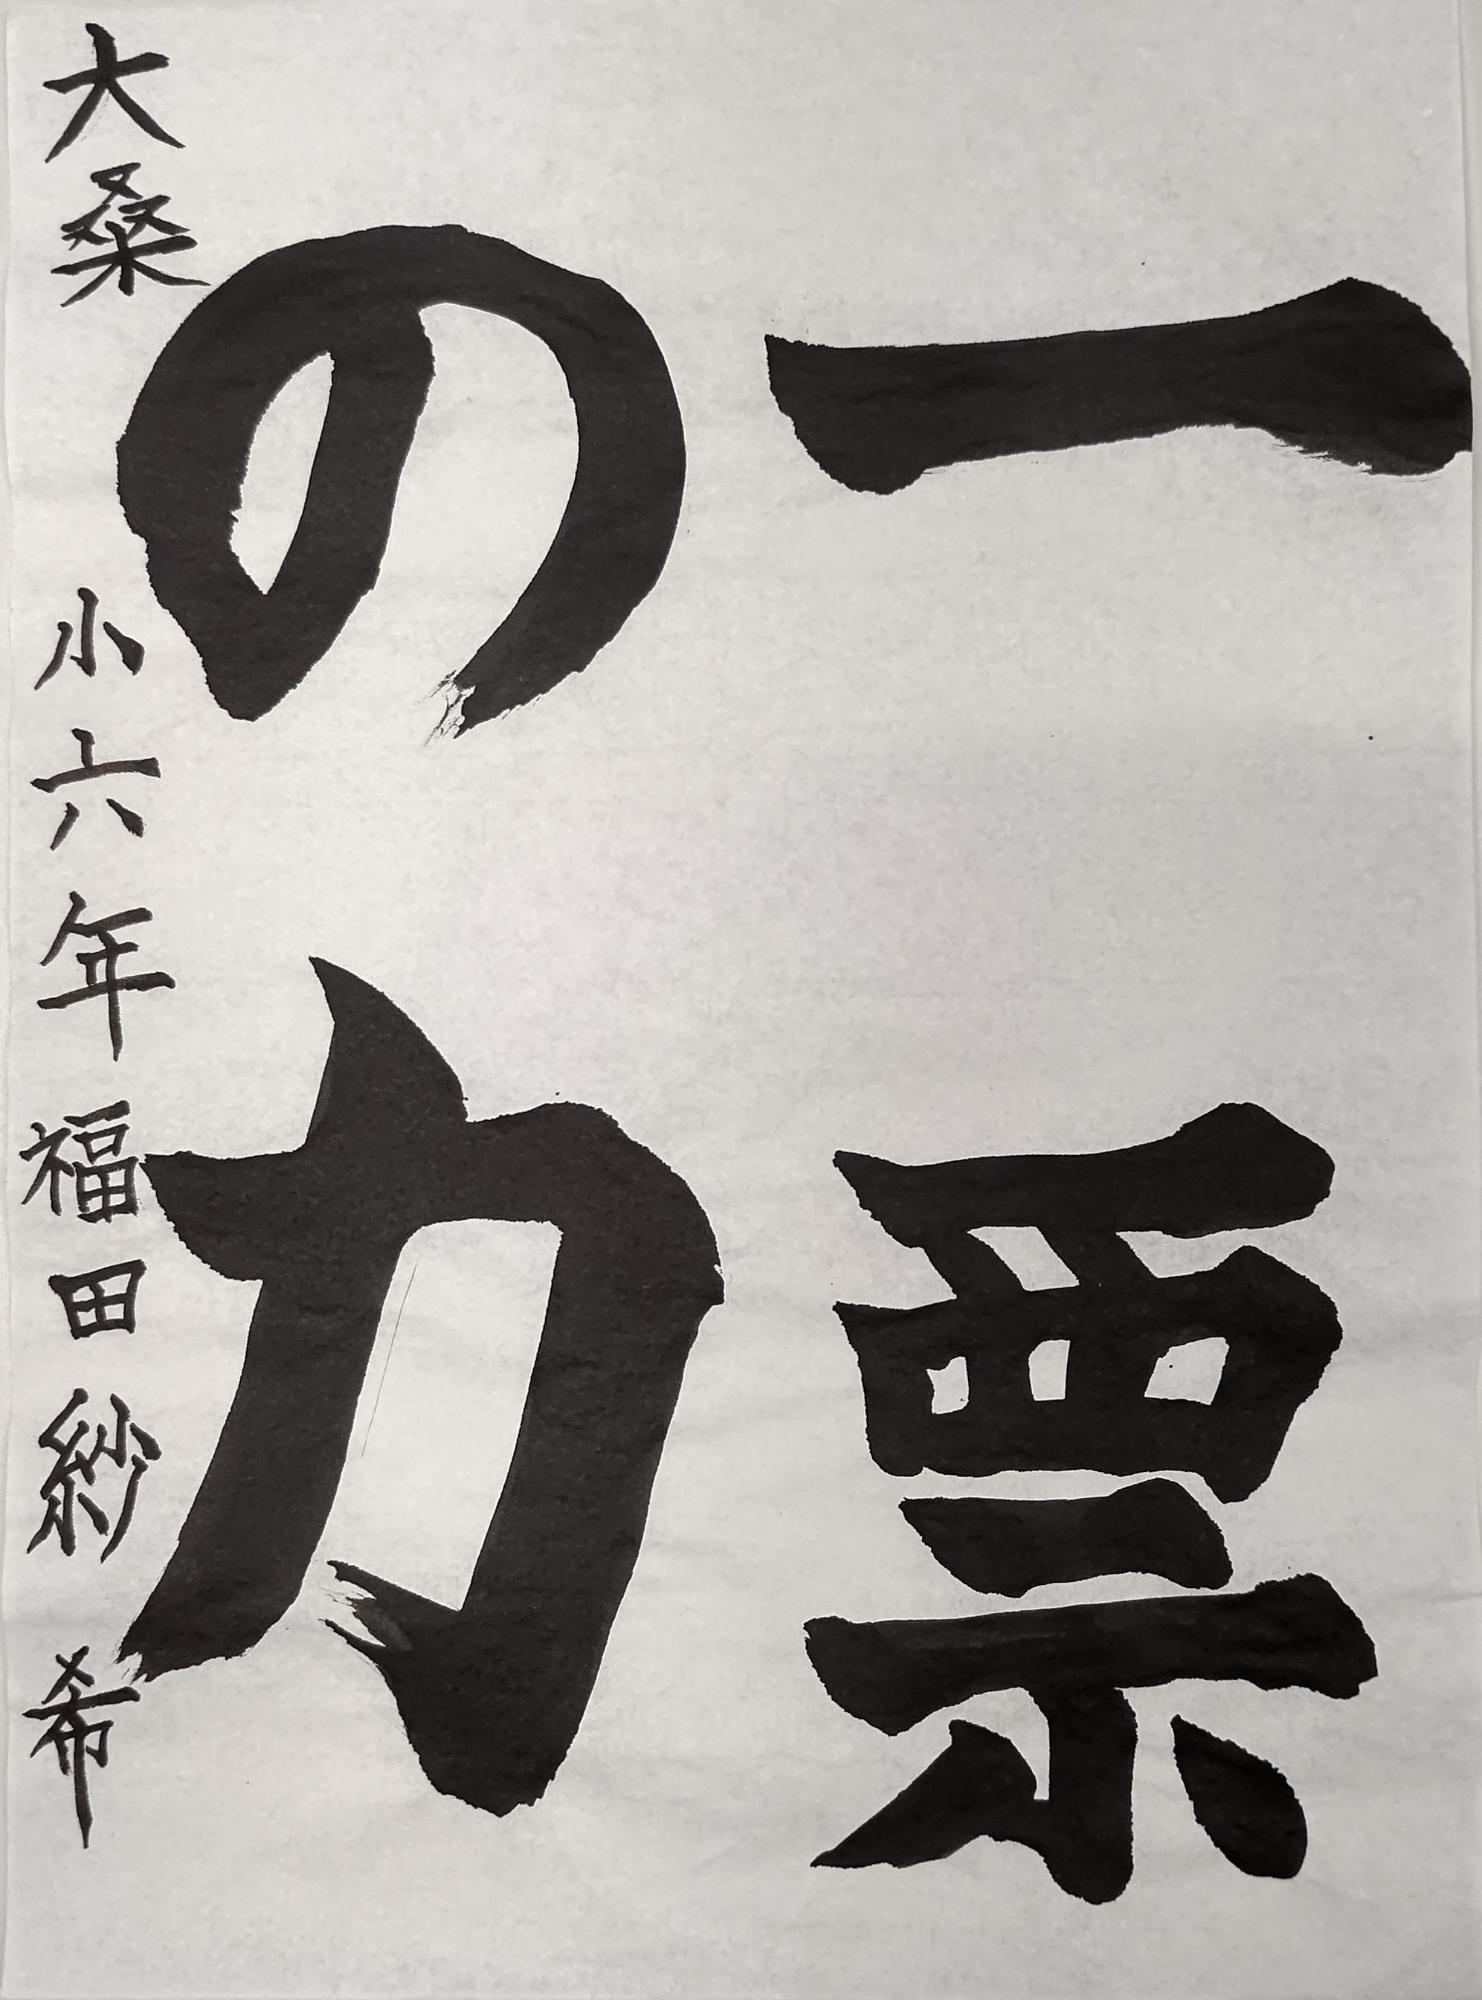 一票
の力
大桑 小六年 福田紗希